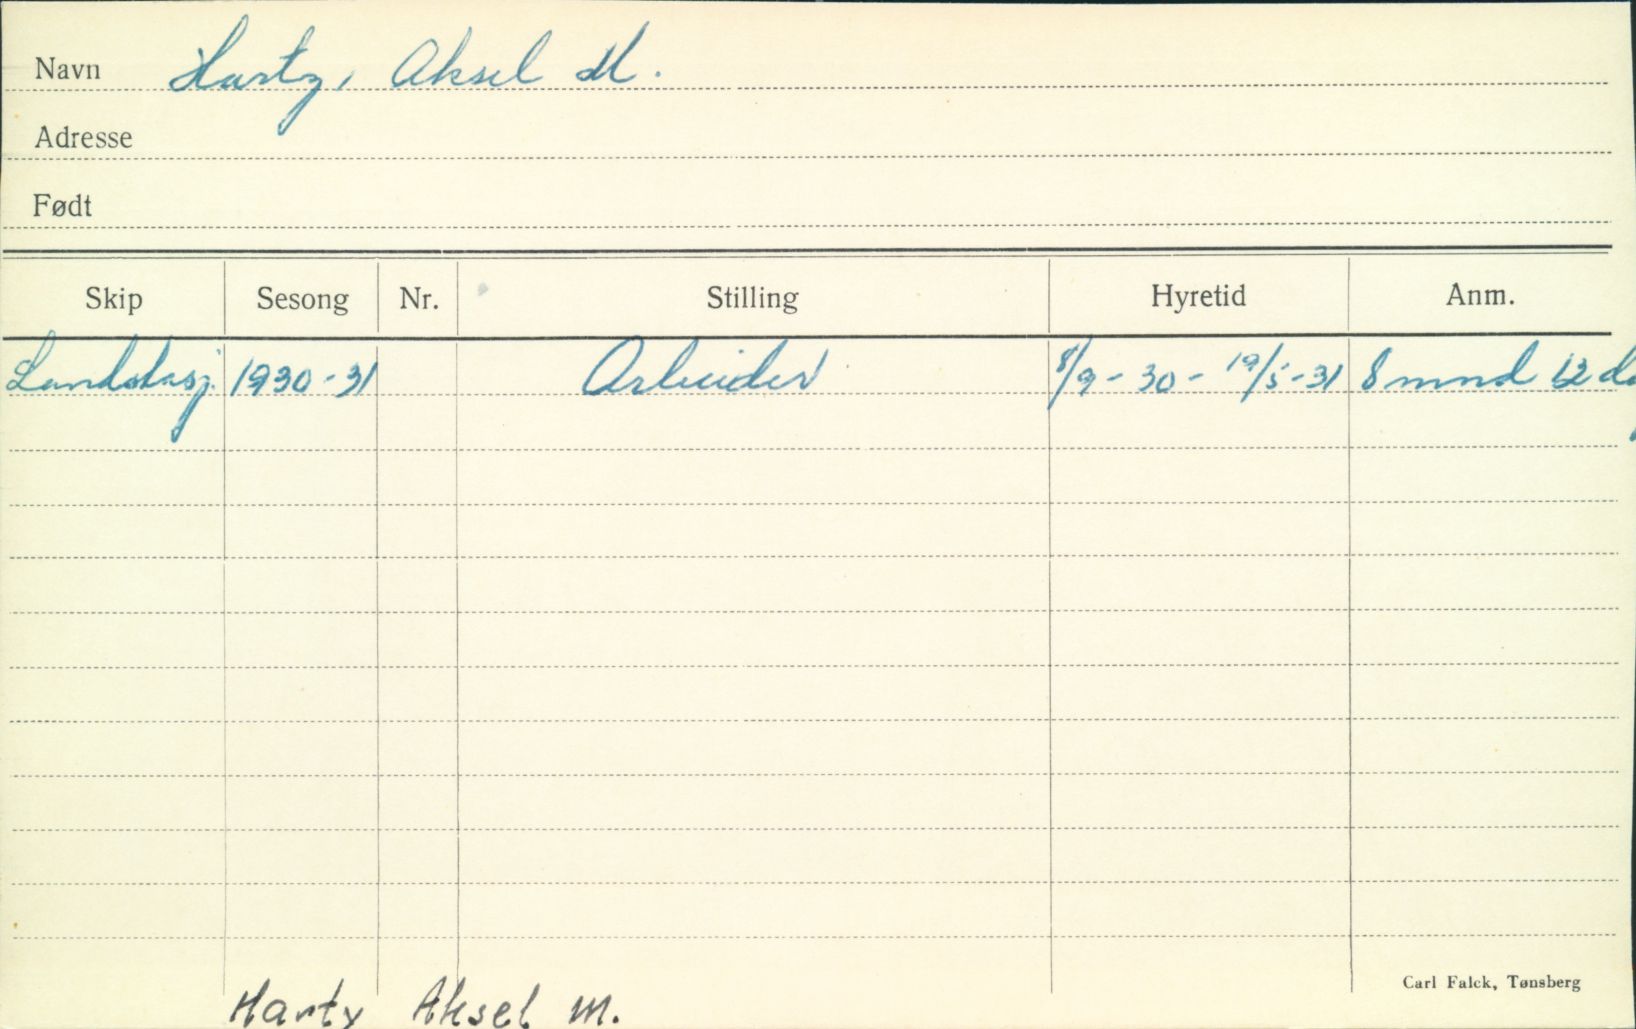 Navn Harty, Aksel M.
Adresse
Født
Skip Sesong Nr. Stilling Hyretid Anm.
Landstasj. 1930-31 Arbeider 8/9-30-19/5-31 8 mnd 12 dg
Carl Falck, Tønsberg
Harty Aksel M.